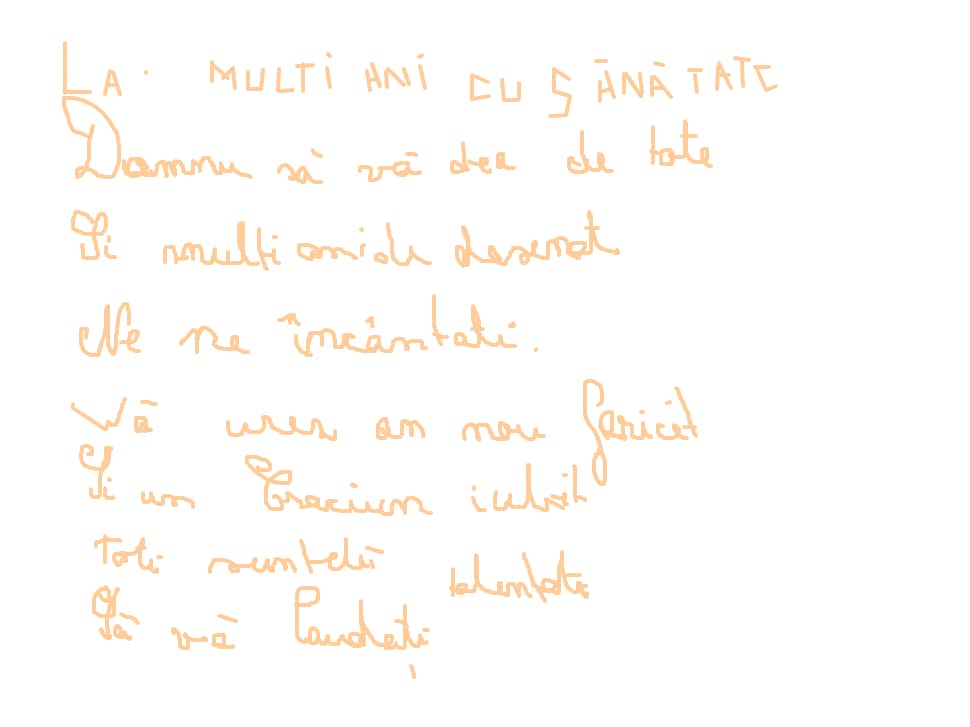 LA MULTI ANI CU SĂNĂTATE
Domnu să vă dee de tote
Si multi ani de desenat
Ne ne încântati.
Vă urez an nou fericit
Si un Craciun iubit
Toti sunteti talentati
Să vă laudați